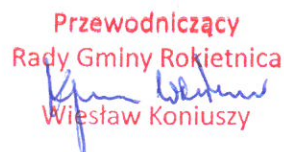 Przewodniczący
Rady Gminy Rokietnica
Wiesław Koniuszy